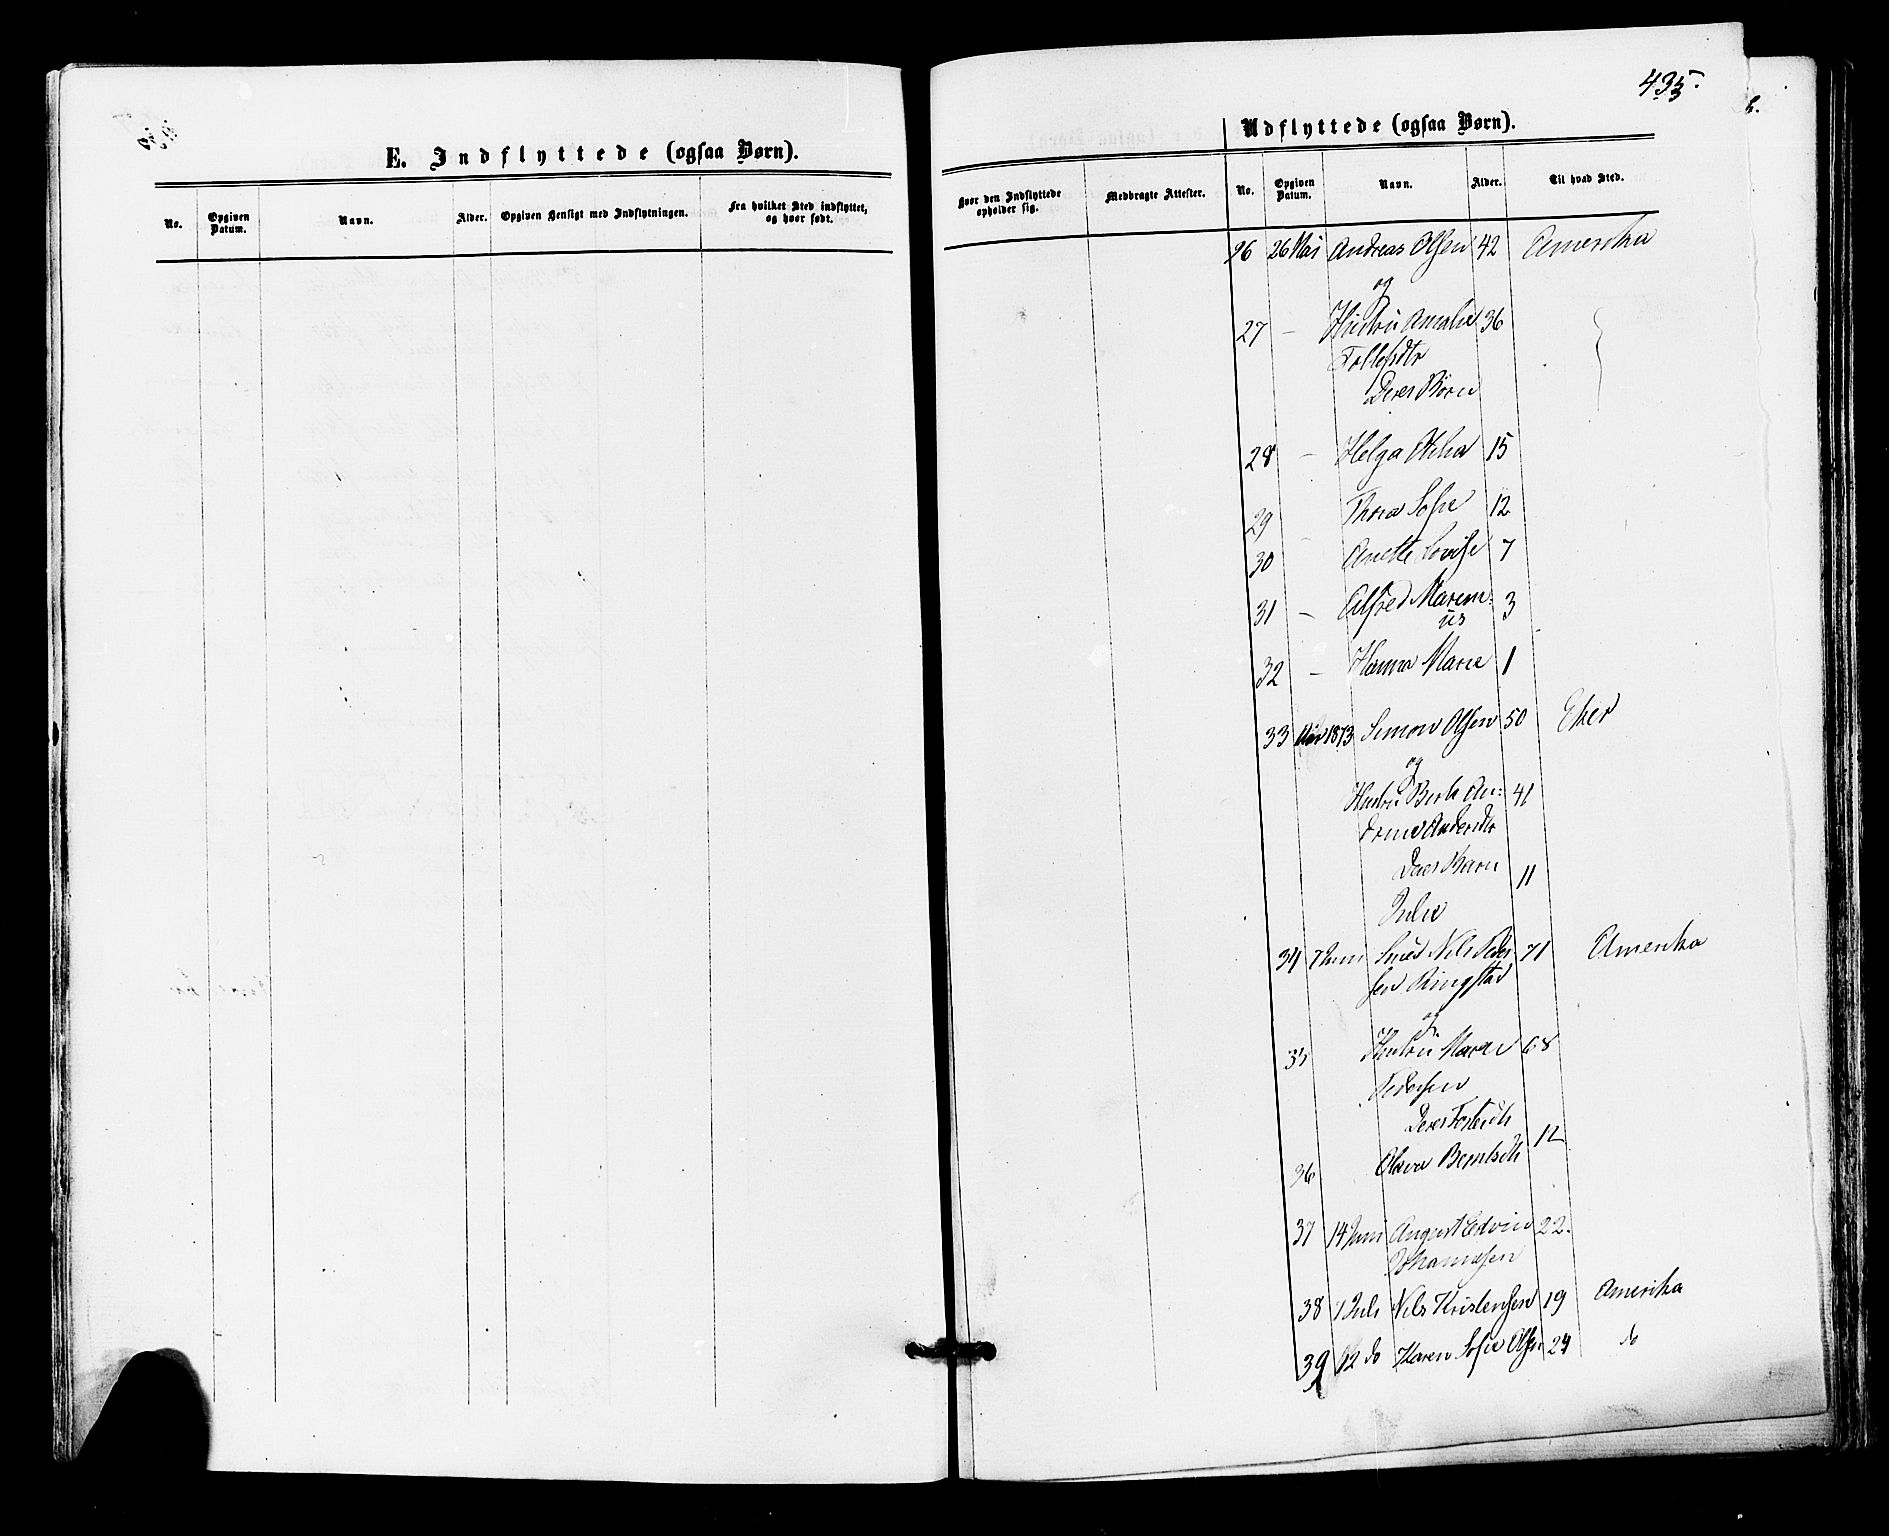 E. Indflyttede (ogsaa Børn).
No.
Opgiven Datum.
Navn.
Alder.
Opgiven Hensigt med Indflytningen.
Fra hvilket Sted indflyttet, og hvor født.
435.
Udflyttede (ogsaa Børn).
Hvor den Indflyttede opholder sig.
Medbragte Attester.
No.
Opgiven Datum.
Navn.
Alder.
Til hvad Sted.
26 26 Mai Andreas Olsen 42 Amerika
og
27 — Hustru Amalie 36
Tollefsdtr
Deres Børn
28 — Helga Othea 15
29 Thora Sofie 12
30 Anette Lovise 7
31 — Alfred Maren= 3
us
32 — Hanna Marie 1
33 1873 Simon Olsen 50 Eker
og
Hustru Berte An= 41
drine Andersdtr
Deres Barn 11
Julie
34 7 Juni Smed Nils Peder 71 Amerika
sen Ringstad
og
35 Hustru Maren 68
Pedersen
Deres Fosterdtr
36 Olava Berntsdtr 12
37 14 Juni August Edvin 22.
Johannesen
38 7 Juli Nils Kristensen 19 Amerika
39 12 do Karen Sofie Olsen 24 do